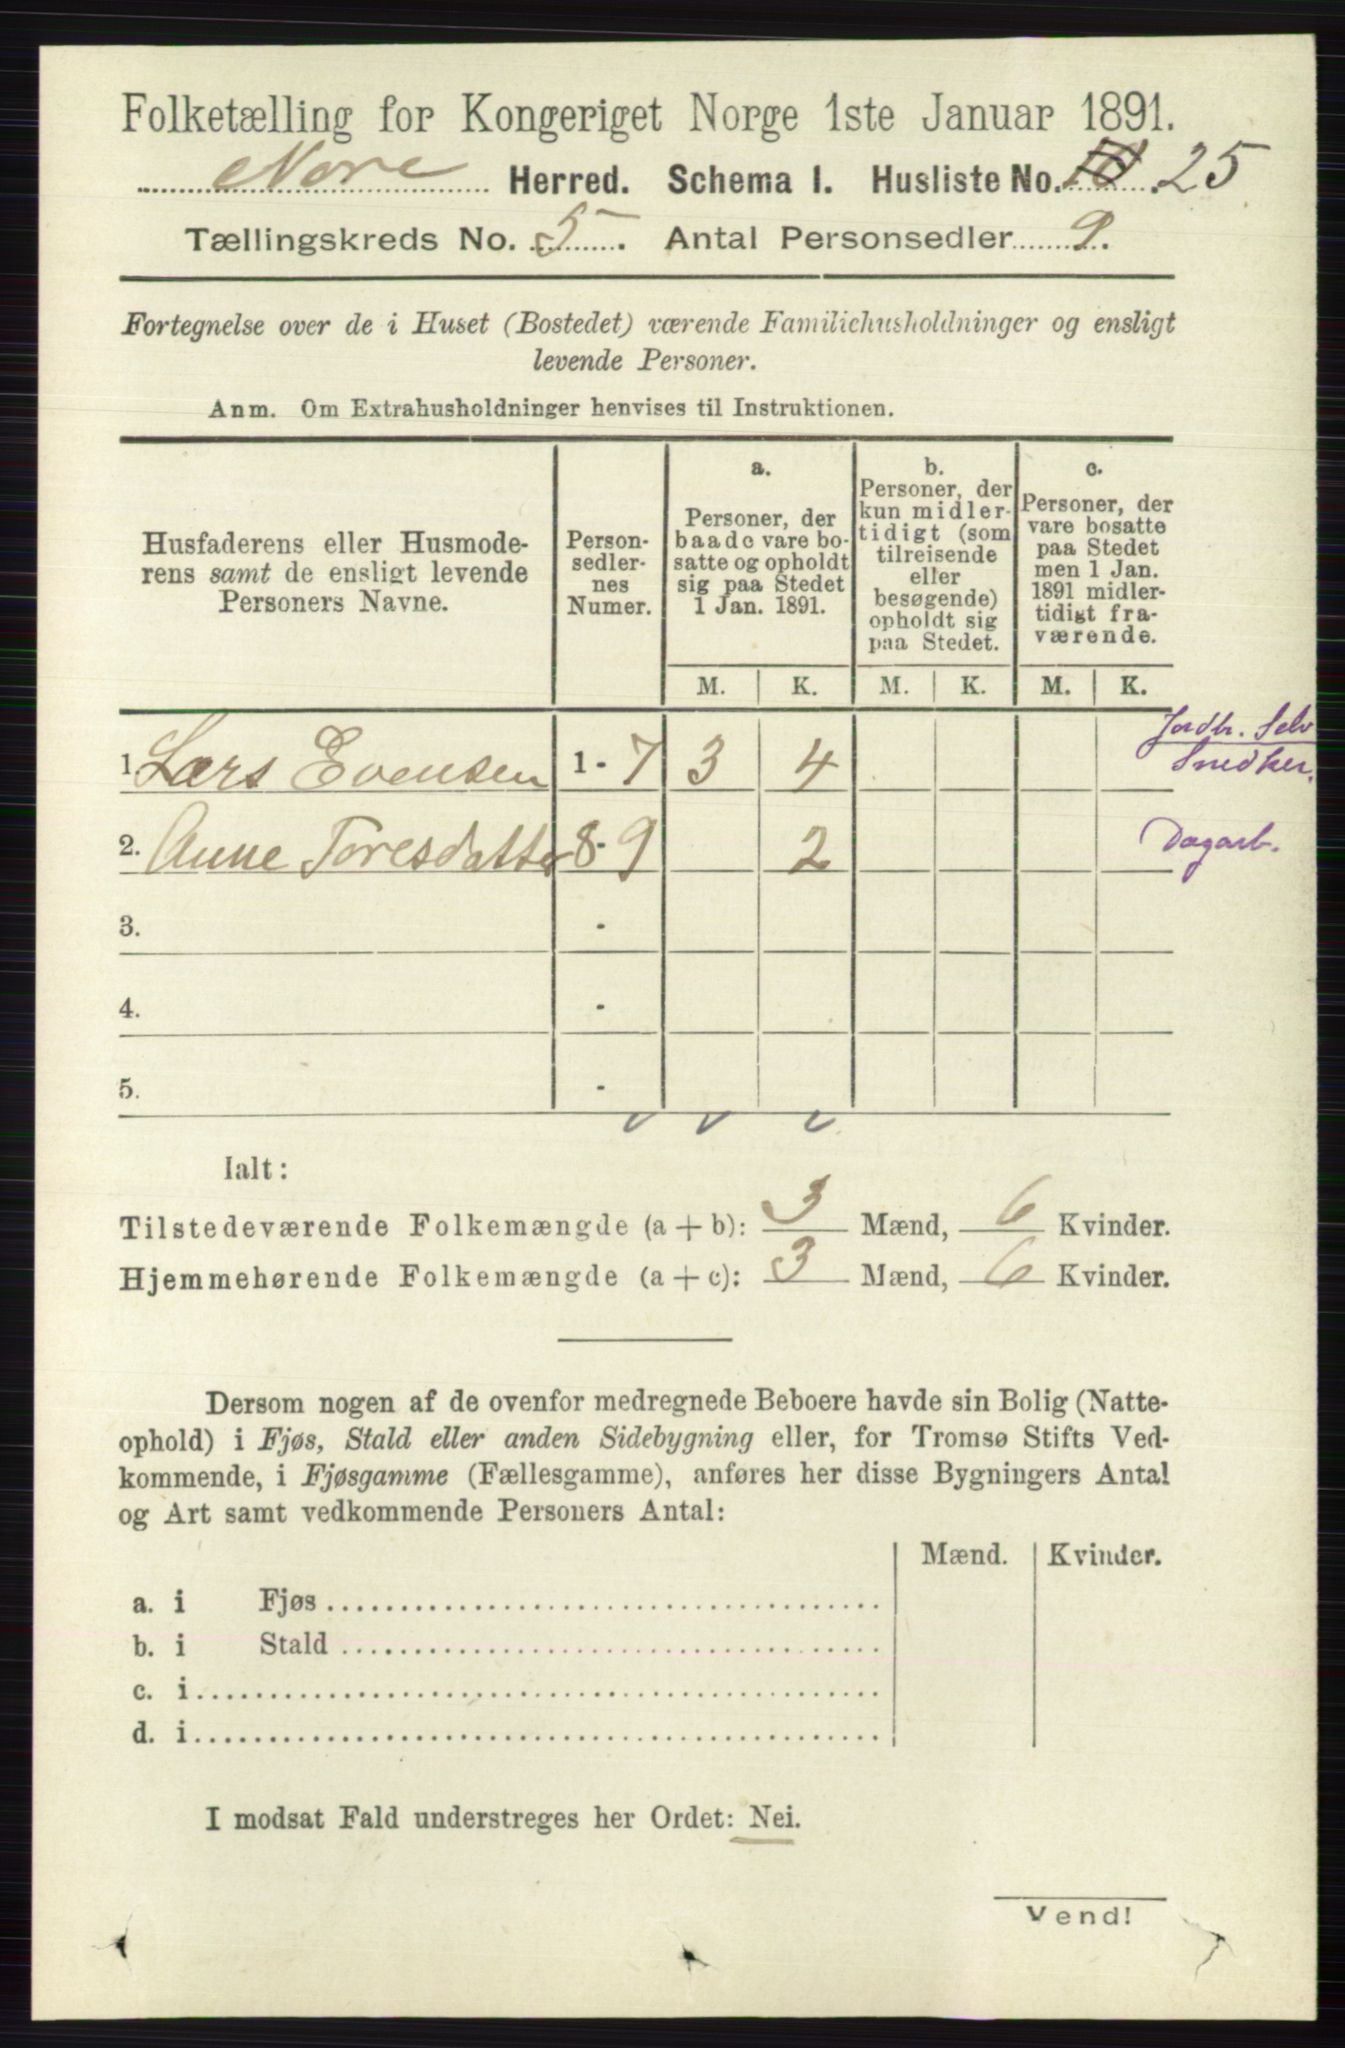 Folketælling for Kongeriget Norge 1ste Januar 1891.
Nore Herred. Schema I. Husliste No. 25
Tællingskreds No. 5. Antal Personsedler 9.
Fortegnelse over de i Huset (Bostedet) værende Familiehusholdninger og ensligt
levende Personer.
Anm. Om Extrahusholdninger henvises til Instruktionen.
Husfaderens eller Husmode-
rens samt de ensligt levende
Personers Navne.
Person-
sedler-
nes
Numer.
a.
Personer, der
baade vare bo-
satte og opholdt
sig paa Stedet
1 Jan. 1891.
b.
Personer, der
kun midler-
tidigt (som
tilreisende
eller
besøgende)
opholdt sig
paa Stedet.
c.
Personer, der
vare bosatte
paa Stedet
men 1 Jan.
1891 midler-
tidigt fra-
værende.
M. K. M. K. M. K.
1 Lars Evensen 1 - 7 3 4 Jordbr. Selv
Snedker.
2. Anne Toresdatter 8 - 9 2 Dagarb.
3. -
4. -
5. -
Ialt:
Tilstedeværende Folkemængde (a + b): 3 Mænd, 6 Kvinder.
Hjemmehørende Folkemængde (a + c): 3 Mænd, 6 Kvinder.
Dersom nogen af de ovenfor medregnede Beboere havde sin Bolig (Natte-
ophold) i Fjøs, Stald eller anden Sidebygning eller, for Tromsø Stifts Ved-
kommende, i Fjøsgamme (Fællesgamme), anføres her disse Bygningers Antal
og Art samt vedkommende Personers Antal:
Mænd. Kvinder.
a. i Fjøs
b. i Stald
c. i
d. i
I modsat Fald understreges her Ordet: Nei.
Vend!